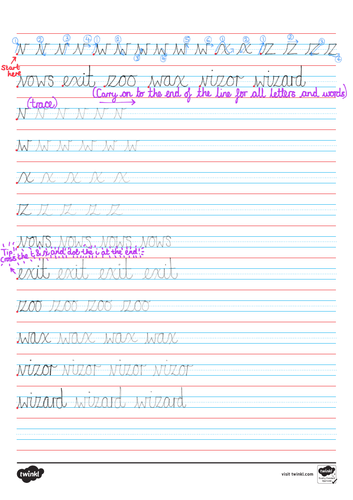 v v v v w w w w w w x x z z z z
Start here
vows exit zoo wax vizor wizard
(Carry on to the end of the line for all letters and words)
(trace)
v v v v v v
w w w w w w
x x x x x
z z z z z
vows vows vows vows
Tip! Cross the t & x and dot the i at the end!
exit exit exit exit
zoo zoo zoo zoo
wax wax wax wax
vizor vizor vizor vizor
wizard wizard wizard
twinkl
visit twinkl.com